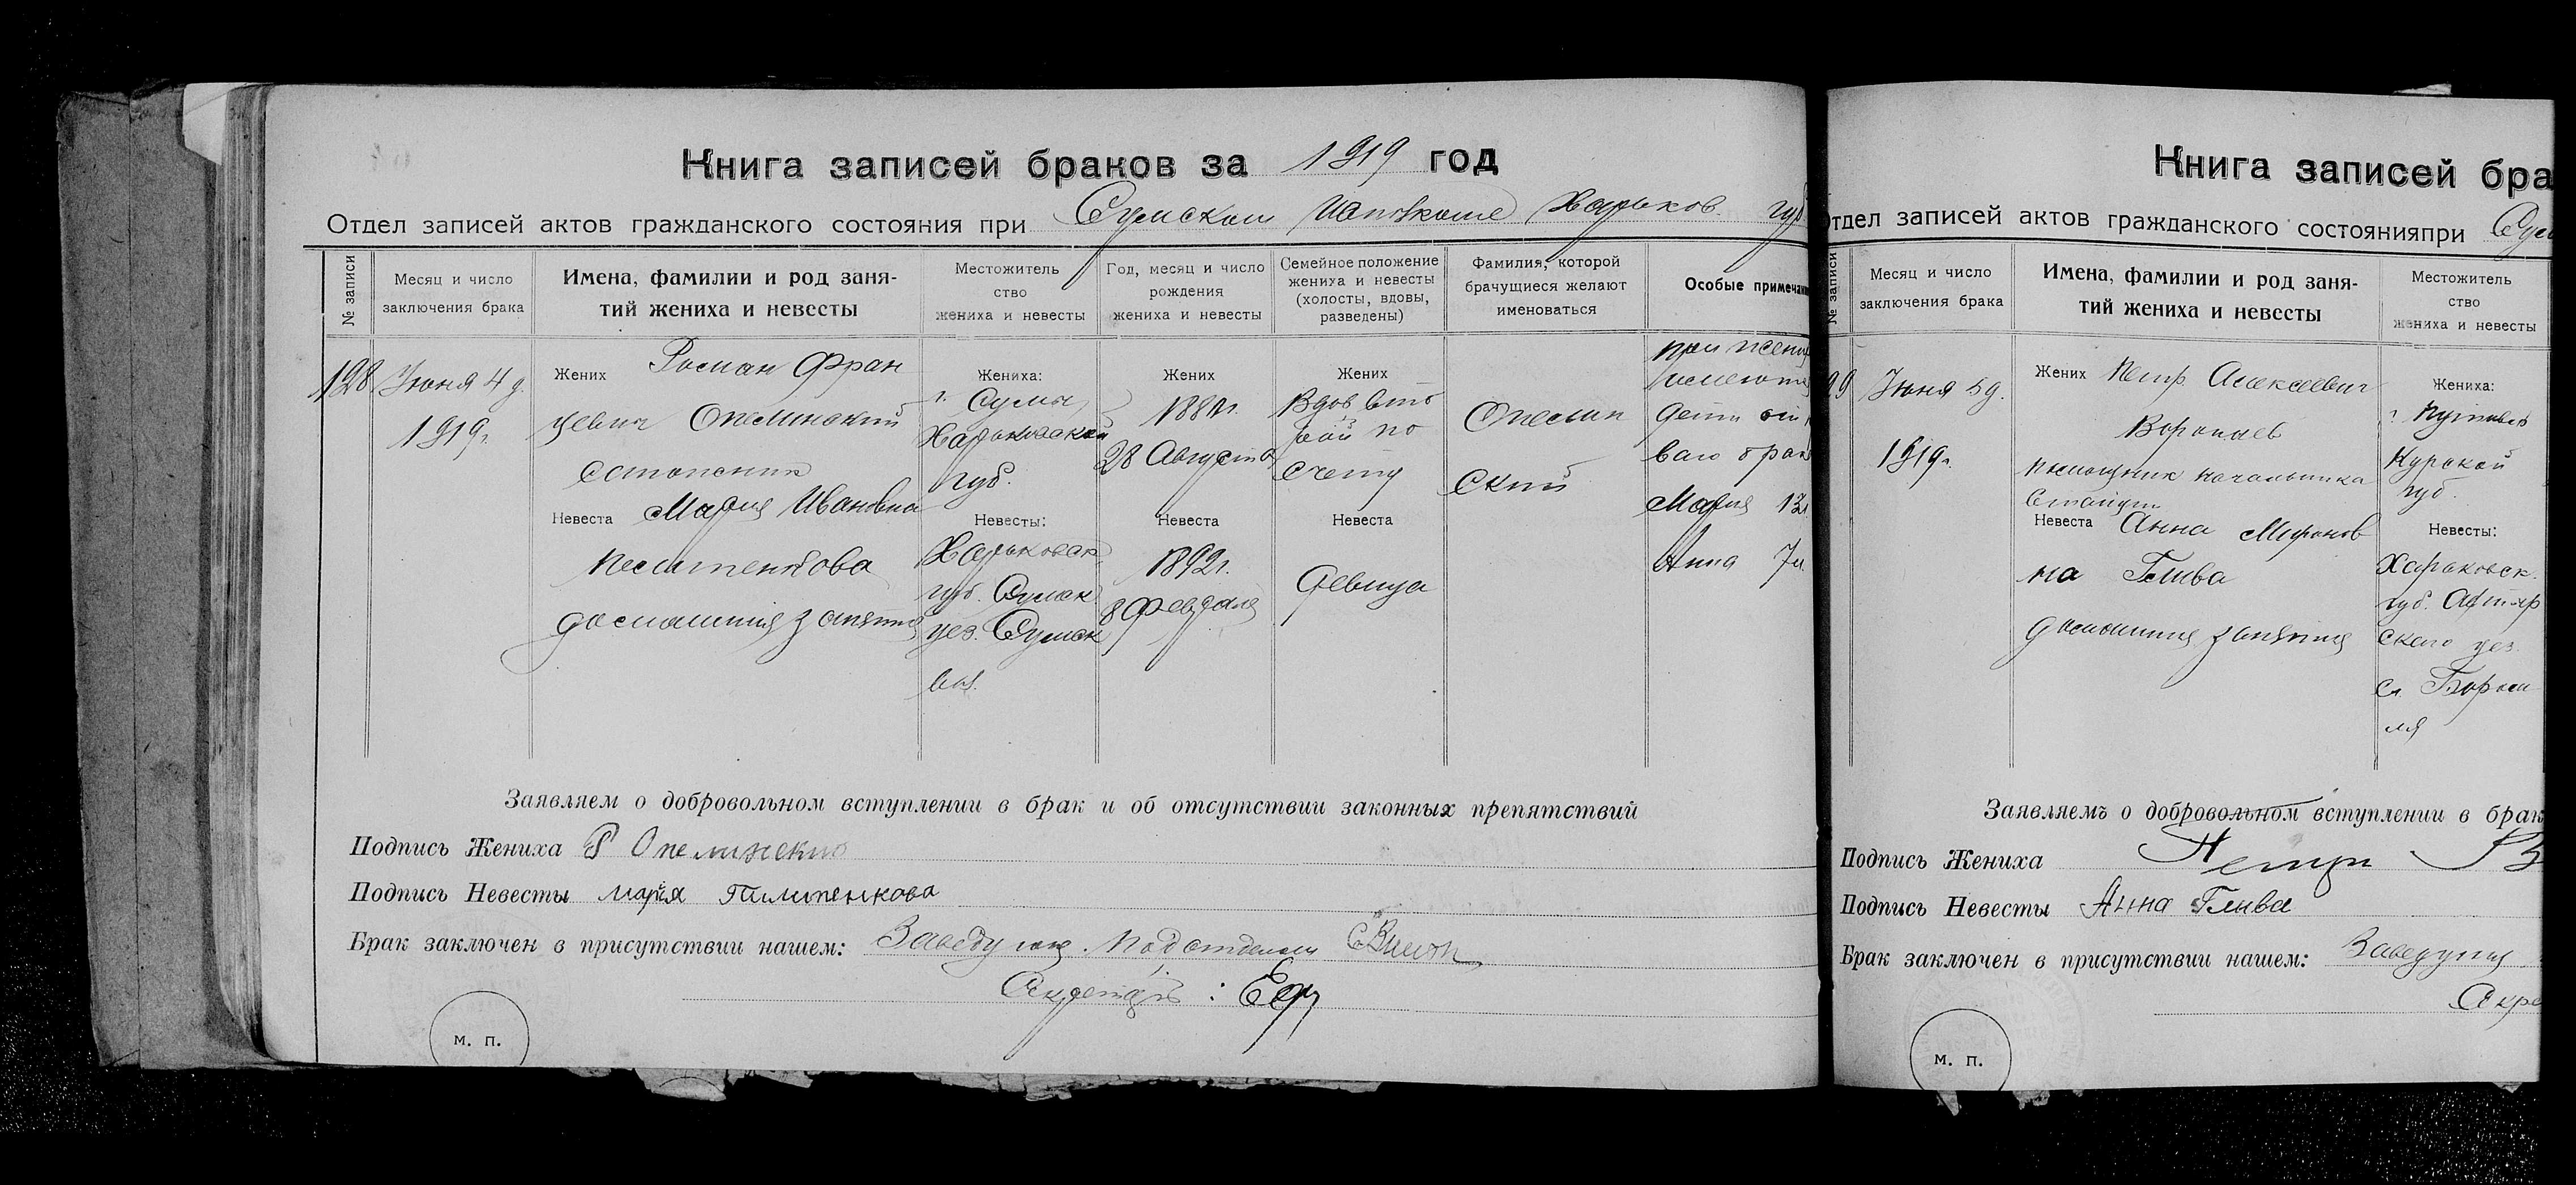 Книга записей браков за 1919 год
Отдел записей актов гражданского состояния при Сумском Исполкоме Харьков. губ
№ записи
Месяц и число
заключения брака
Имена, фамилии и род заня-
тий жениха и невесты
Местожитель
ство
жениха и невесты
Год, месяц и число
рождения
жениха и невесты
Семейное положение
жениха и невесты
(холосты, вдовы,
разведены)
Фамилия, которой
брачущиеся желают
именоваться
Особые примечани
128
Июня 4 д.
1919г.
Жених Роман Фран
цевич Опелинский
Невеста Мария Ивановна
домашния занятия
Жениха:
г. Сумы,
Харьковской
губ.
Невесты:
Харьковск.
губ. Сумск
уез. Сумск
вол.
Жених
28 Августа
Невеста
1892г.
8 Февраля
Жених
Вдов. вто
рой по
счету
Невеста
девица
Опелин
ский
при жених
имеются
дети от
ваго брак
Мария 12л
Анна 7л.
Заявляем о добровольном вступлении в брак и об отсутствии законных препятствий
Подпись Жениха Р Опелинский
Подпись Невесты марія Пилипенкова
Брак заключен в присутствии нашем: Заведующ. Подотделом
Секретарь:
м. п.
Книга записей бра
Отдел записей актов гражданского состоянияпри Сум
№ записи
Месяц и число
заключения брака
Имена, фамилии и род заня-
тий жениха и невесты
Местожитель
ство
жениха и невесты
29
Июня 5д.
1919г.
Жених Петр Алексеевич
Воропаев
помощник начальника
станции
Невеста Анна Миронов
на Глива
домашния занятия
Жениха:
г. Путивль
Курской
губ.
Невесты:
Харьковск.
губ. Ахтыр
скаго уез.
сл. Боромля
Заявляемъ о добровольном вступлении в брак
Подпись Жениха Петр
Подпись Невесты Анна Глива
Брак заключен в присутствии нашем: Заведующ
Секре
м. п.